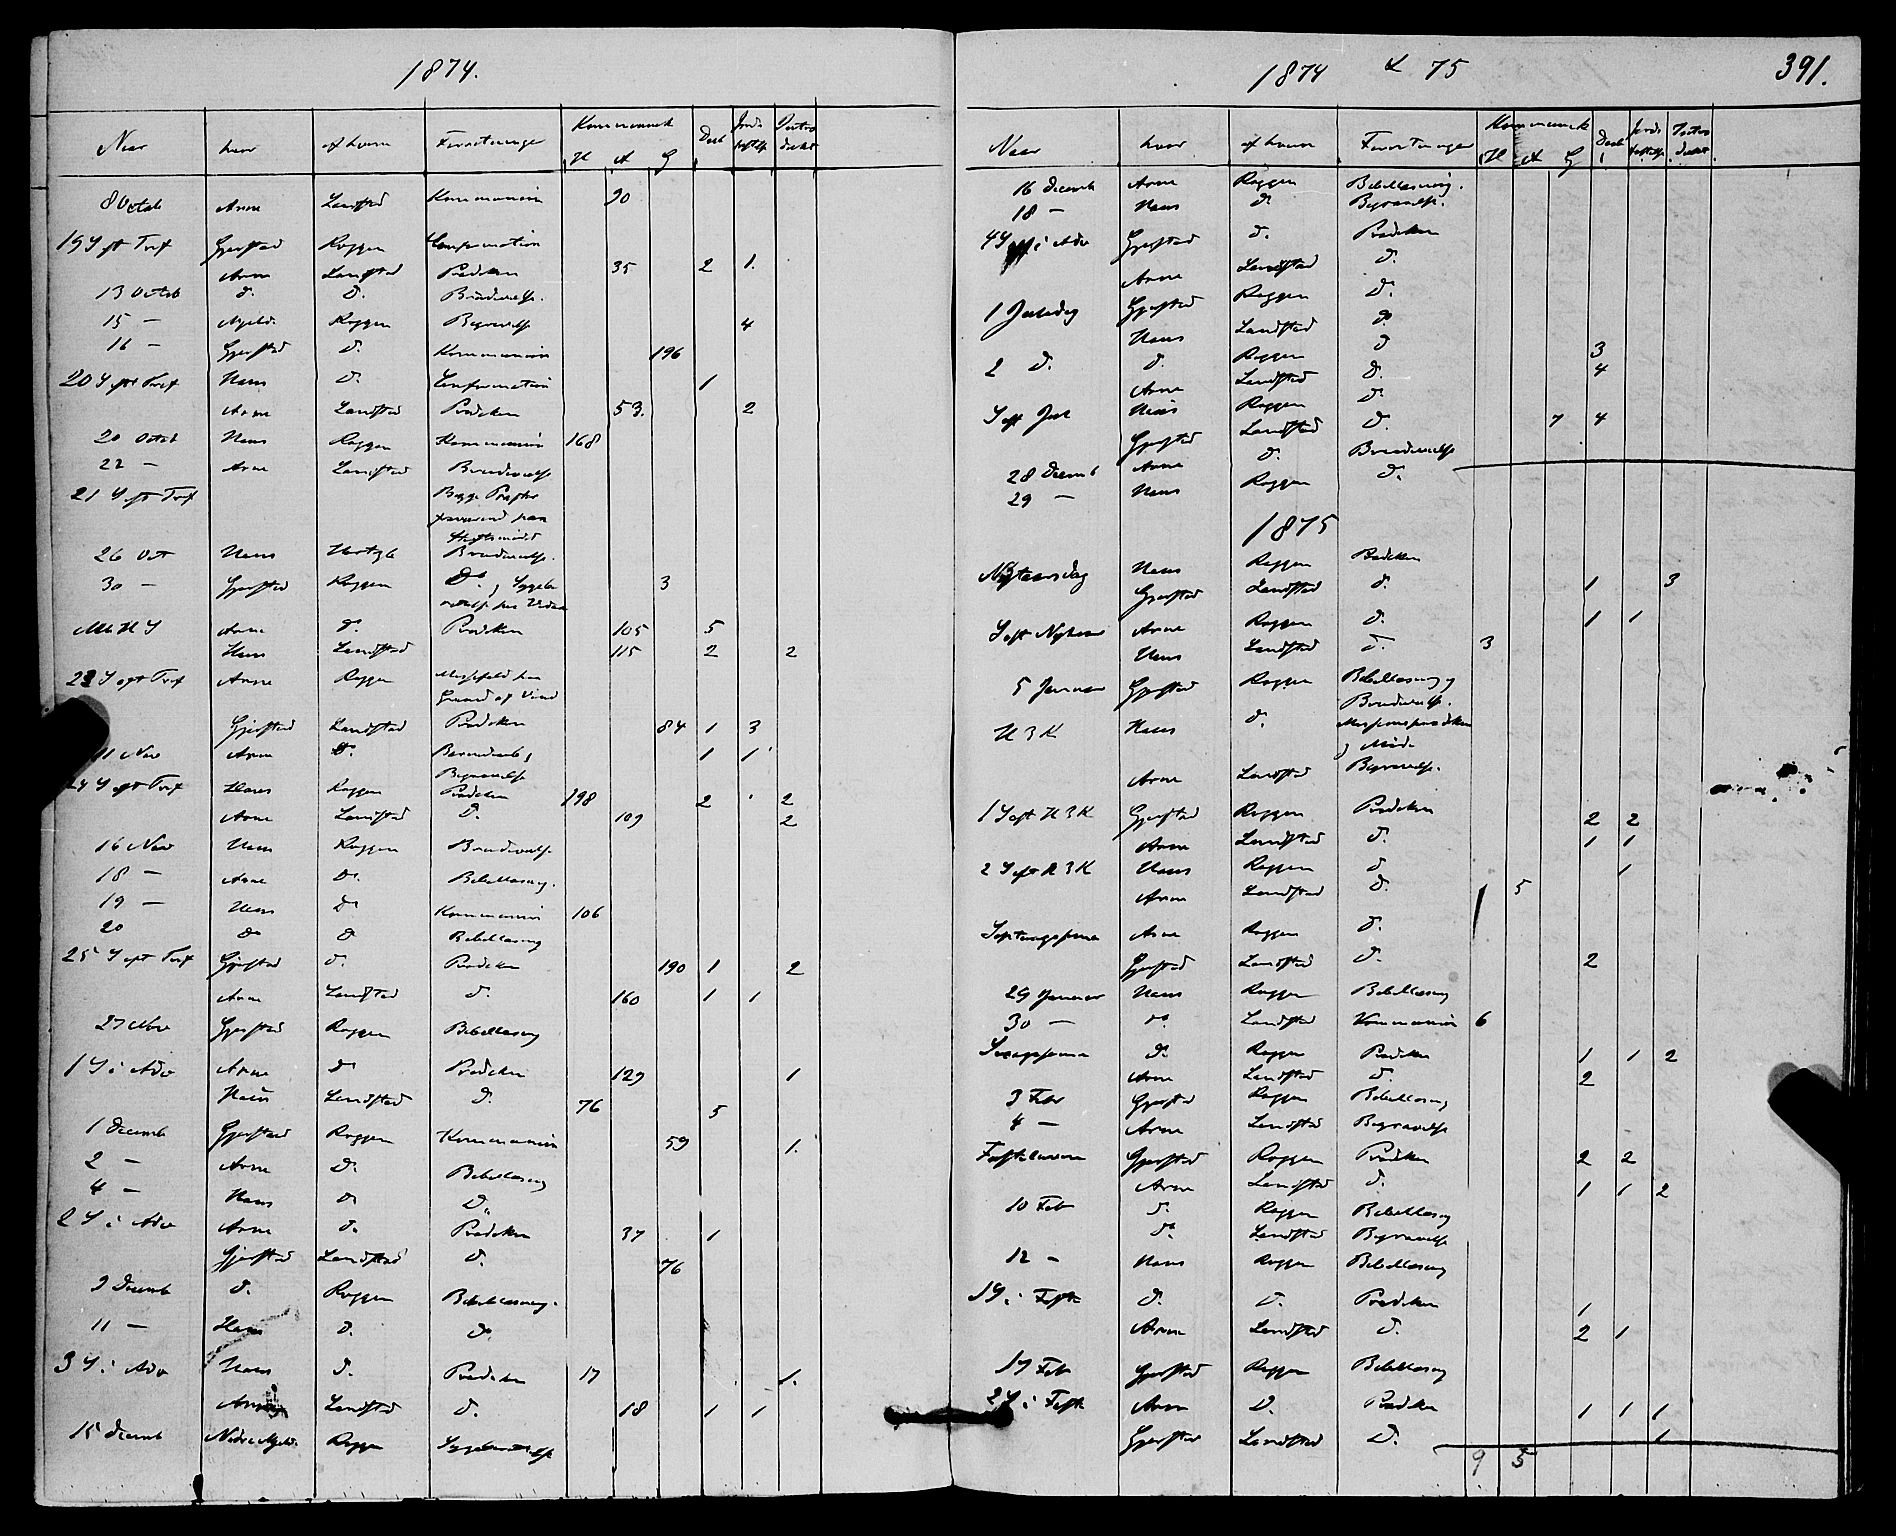 1874.
Naar hvor af hvem Forretninger Kommunik H A G Daab Jords festelse Introduktion
8 Octob Arne Landstad Kommunion 90
19 S eft Tref Gjerstad Roggen Confirmation
Arne Landstad Prædiken 35 2 1.
13 Octob d. d. Brudevielse.
15 - Roggen Begravelse 4
16 - Gjerstad d. Kommunion 196
20 S eft Tref Haus d. Confirmation 1
Arne Landstad Prædiken 53. 2
20 Octob Haus Roggen Kommunion 168
22 - Arne Landstad Brudevielse
21 S eft Tref Begge Præster
fraværend paa
Stiftsmødet
26 Oct Haus Brudevielse.
30 - Gjerstad Roggen do. og Sygebe 3
Arne d. Prædiken 105 5
Haus Landstad 115 2 2
23 S eft Tref Arne Roggen Messefald paa
Grund af Vind
Gjerstad Landstad Prædiken 84 1 3
11 Nov Arne do Barnedaab &
Begravelse 1 1
24 S eft Tref Haus Roggen Prædiken 198 2 2
Arne Landstad d. 109 2
16 Nov Haus Roggen Brudevielse
18 - Arne do. Bibellæsning.
19 - Haus do Kommunion 106
20 do d Bibellæsning
25 S eft Tref Gjerstad d. Prædiken 190 1 2
Arne Landstad d. 160 1 1
27 Nov Gjerstad Roggen Bibellæsning
1 S i Adv Arne do Prædiken 129 1
Haus Landstad d. 76 5
1 Decemb Gjerstad Roggen Kommunion 59 1.
2 - Arne d. Bibellæsning
4 - Haus d d.
2 S i Adv Arne d. Prædiken 37 1
Gjerstad Landstad d. 76
9 Decemb d. Roggen Bibellæsning.
11 - Haus d. do
3 S i Adv Haus d. Prædiken 17 1.
Arne Landstad d. 18 1 1
15 Decemb Roggen
1874 & 75 391.
Naar hvor af hvem Forretninger Kommunik H A G Daab Jords festelse Introduktion
16 Decemb Arne Roggen Bibellæsning.
18 - Haus d. Begravelse.
4 S i Adv Gjerstad d. Prædiken
Arne Landstad d.
1 Juledag Gjerstad Roggen d.
Haus Landstad d.
2 d. d. Roggen d 3
Arne Landstad d. 4
S eft Jul Haus Roggen d.
Gjerstad Landstad d. 7 4
28 Decemb Arne d. Brudevielse
29 - Haus Roggen d.
1875
Nytaarsdag Haus Roggen Prædiken
Gjerstad Landstad d. 1 3
S eft Nytaar Arne Roggen d. 1 1
Haus Landstad d. 3
5 Januar Gjerstad Roggen Bibellæsning og
Brudevielse.
H 3 K Haus d. Missionsprædiken
og Møde
Arne Landstad Begravelse.
1 S eft H 3 K Gjerstad Roggen Prædiken 2 2
Arne Landstad d. 1 1
2 S eft H 3 K Haus Roggen d 1
Arne Landstad d. 5
Septuagesima Arne Roggen d.
Gjerstad Landstad d. 2
29 Januar Haus Roggen Bibellæsning
30 - do Landstad Kommunion 6
Sexagesima d. Roggen Prædiken 1 1 2
Arne Landstad d. 2
3 Febr Gjerstad Roggen Bibellæsning
4 - Arne Landstad Begravelse
Fastelavn Gjerstad Roggen Prædiken 2 2
Arne Landstad d. 1 1 2
10 Feb d. Roggen Bibellæsning
do Landstad Begravelse
12 - Haus Roggen Bibellæsning
1 S i Faste d. d. Prædiken 1
Arne Landstad d. 2 1
17 Feb Gjerstad Roggen Bibellæsning
2 S i Faste Arne d. Prædiken 1 1 1
Gjerstad Landstad d. 1
9 5